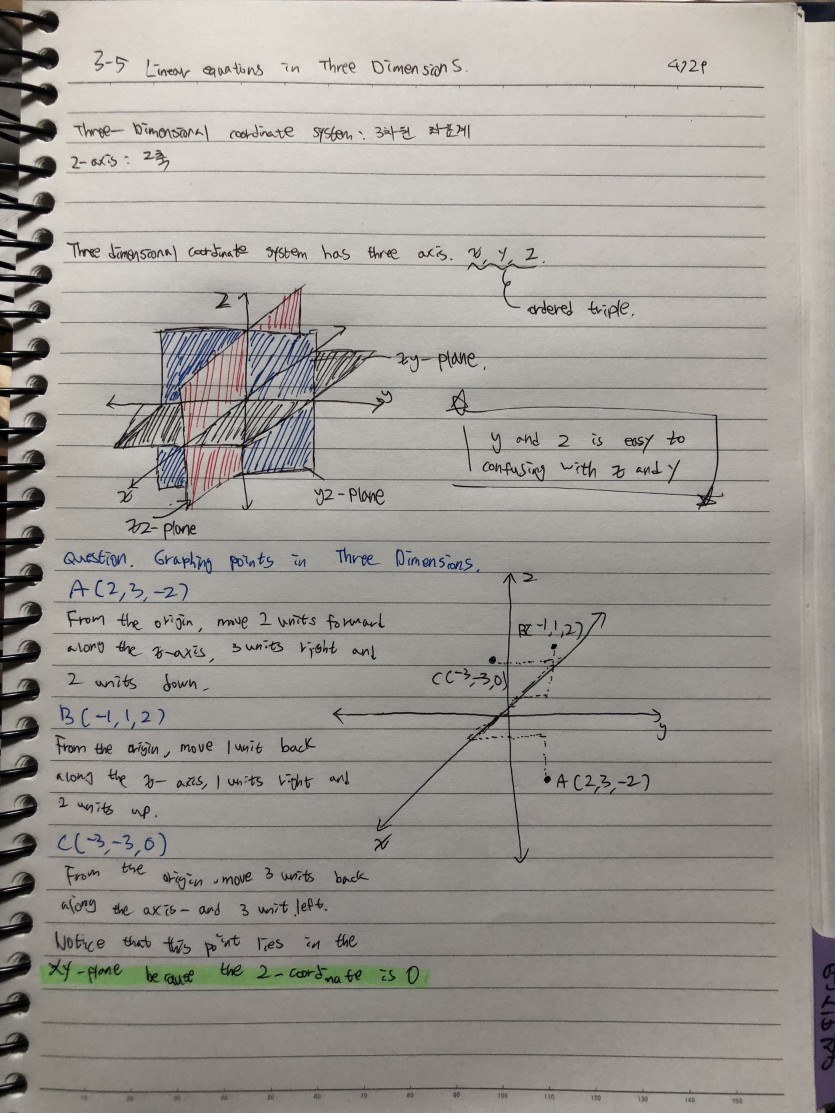 3-5 Linear equations in Three Dimensions. 4/29
Three-Dimensional coordinate system: 3차원 좌표계
z-axis: z축
Three dimensional coordinate system has three axis. x, y, z.
ordered triple.
z
xy-plane.
y
y and z is easy to
confusing with x and y
x
yz-plane
xz-plane
Question. Graphing points in Three Dimensions.
A(2,3,-2)
From the origin, move 2 units forward
along the x-axis, 3 units right and
2 units down.
B(-1,1,2)
From the origin, move 1 unit back
along the x- axis, 1 units right and
2 units up.
C(-3,-3,0)
From the origin, move 3 units back
along the axis- and 3 unit left.
Notice that this point lies in the
xy-plane because the z-coordinate is 0
z
B(-1,1,2)
C(-3,-3,0)
y
A(2,3,-2)
x